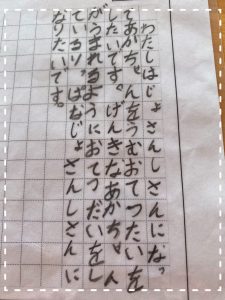 わたしはじょさんしさんになっ
てあかちゃんをうむおてつだいを
したいです。げんきなあかちゃん
がうまれるようにおてつだいをし
ているりっぱなじょさんしさんに
なりたいです。